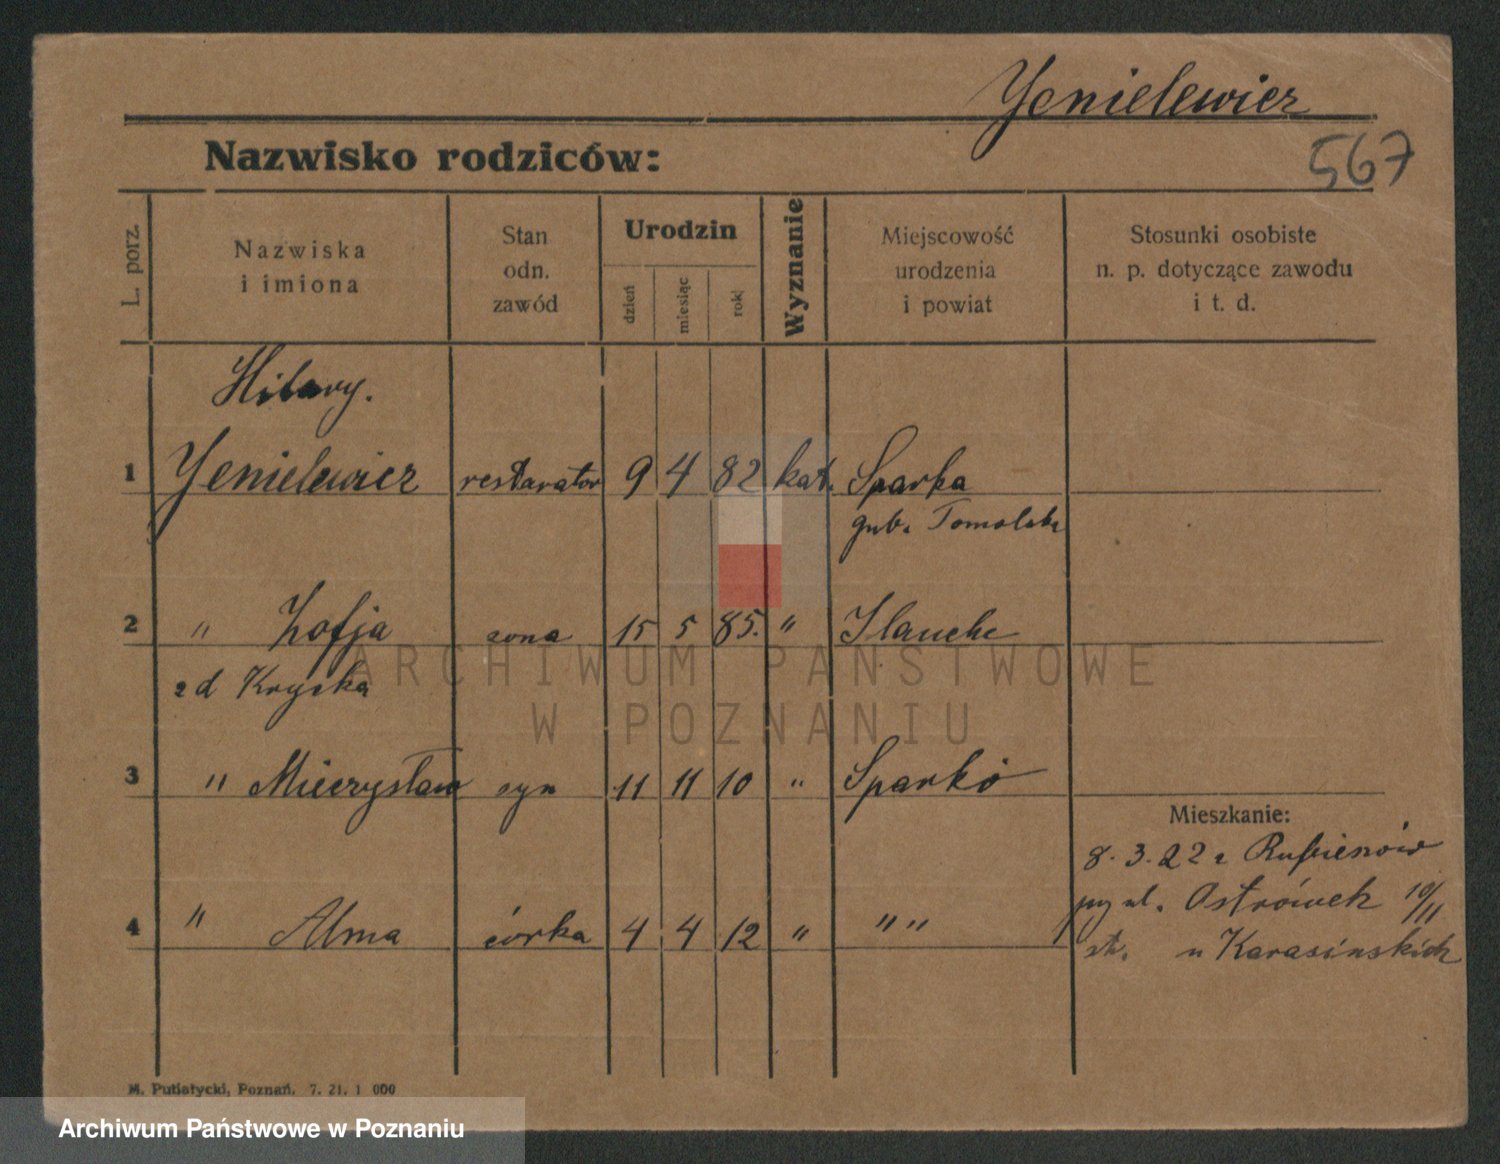 Yenielewicz
567
Nazwisko rodziców:
L. porz.
Nazwiska
i imiona
Stan
odn.
zawód
Urodzin
dzień
miesiąc
rok
Wyznanie
Miejscowość
urodzenia
i powiat
Stosunki osobiste
n. p. dotyczące zawodu
i t. d.
Hilary.
1 Yenielewicz restarator 9 4 82 kat. Sparka
gub.
2 " Zofja żona 15 5 85. "
zd Kryzka
3 " Mieczysław syn 11 11 10 "
Mieszkanie:
8. 3. 22 z
4 " Alma córka 4 4 12 " " "
przy ul. Ostrówek 10/11
u Karasińskich
ARCHIWUM PAŃSTWOWE
W POZNANIU
M. Putiatycki, Poznań. 7. 21. 1 000
Archiwum Państwowe w Poznaniu